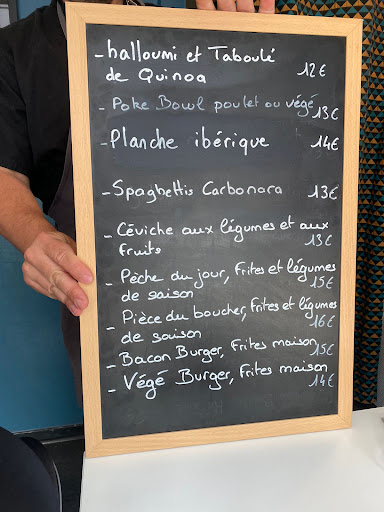 - halloumi et Taboulé
de Quinoa 12€
- Poke Bowl poulet ou végé
13€
- Planche ibérique 14€
- Spaghettis Carbonara 13€
- Céviche aux légumes et aux
fruits 13€
- Pèche du jour, frites et légumes
de saison 15€
- Pièce du boucher, frites et légumes
de saison 16€
- Bacon Burger, Frites maison
15€
- Végé Burger, frites maison
14€